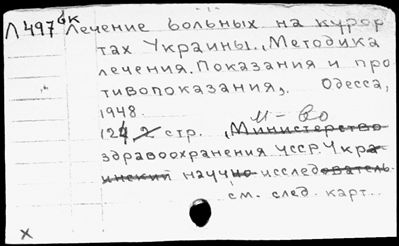 Л497 вк Лечение больных на курор
тах Украины., Методика
лечения. Показания и про
тивопоказания,. Одесса,
1948.
м-во
124 2 стр. , Министерство
здравоохранения УССР. Укра-
инский научно-исследователь.
см. след. карт..
х